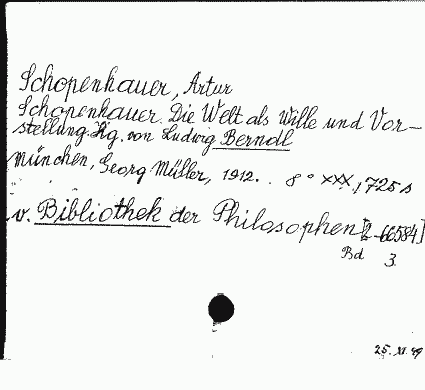 Schopenhauer, Artur
Schopenhauer. Die Welt als Wille und Vor-
stellung. Hg. von Ludwig Berndl
München, Georg Müller, 1912. . 8° XXX, 725 s
v. Bibliothek der Philosophen [2 66584]
Bd 3.
25. XI. 49